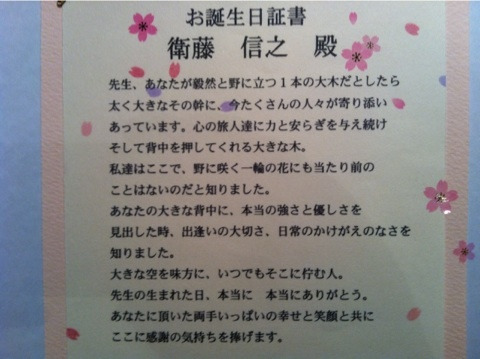 お誕生日証書
衛藤 信之 殿
先生、あなたが毅然と野に立つ1本の大木だとしたら
太く大きなその幹に、今たくさんの人々が寄り添い
あっています。心の旅人達に力と安らぎを与え続け
そして背中を押してくれる大きな木。
私達はここで、野に咲く一輪の花にも当たり前の
ことはないのだと知りました。
あなたの大きな背中に、本当の強さと優しさを
見出した時、出逢いの大切さ、日常のかけがえのなさを
知りました。
大きな空を味方に、いつでもそこに佇む人。
先生の生まれた日、本当に 本当にありがとう。
あなたに頂いた両手いっぱいの幸せと笑顔と共に
ここに感謝の気持ちを捧げます。